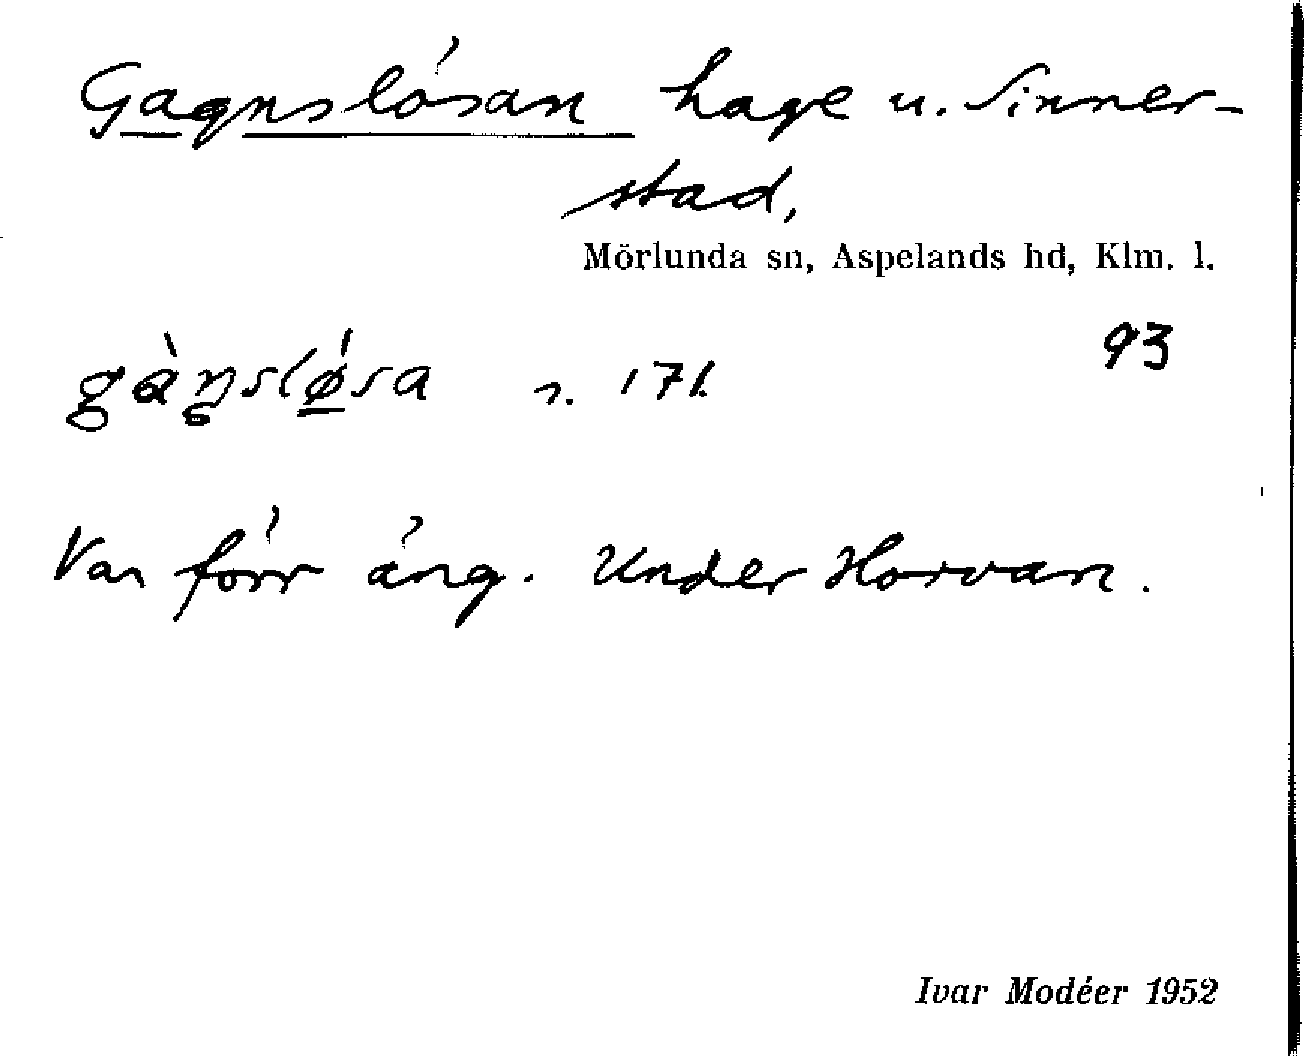 Gagnslösan hage u. Sinner-
stad,
Mörlunda sn, Aspelands hd, Klm. l.
93
gàŋslǿsa n. 171.
Var förr äng. Under Horvan.
Ivar Modéer 1952